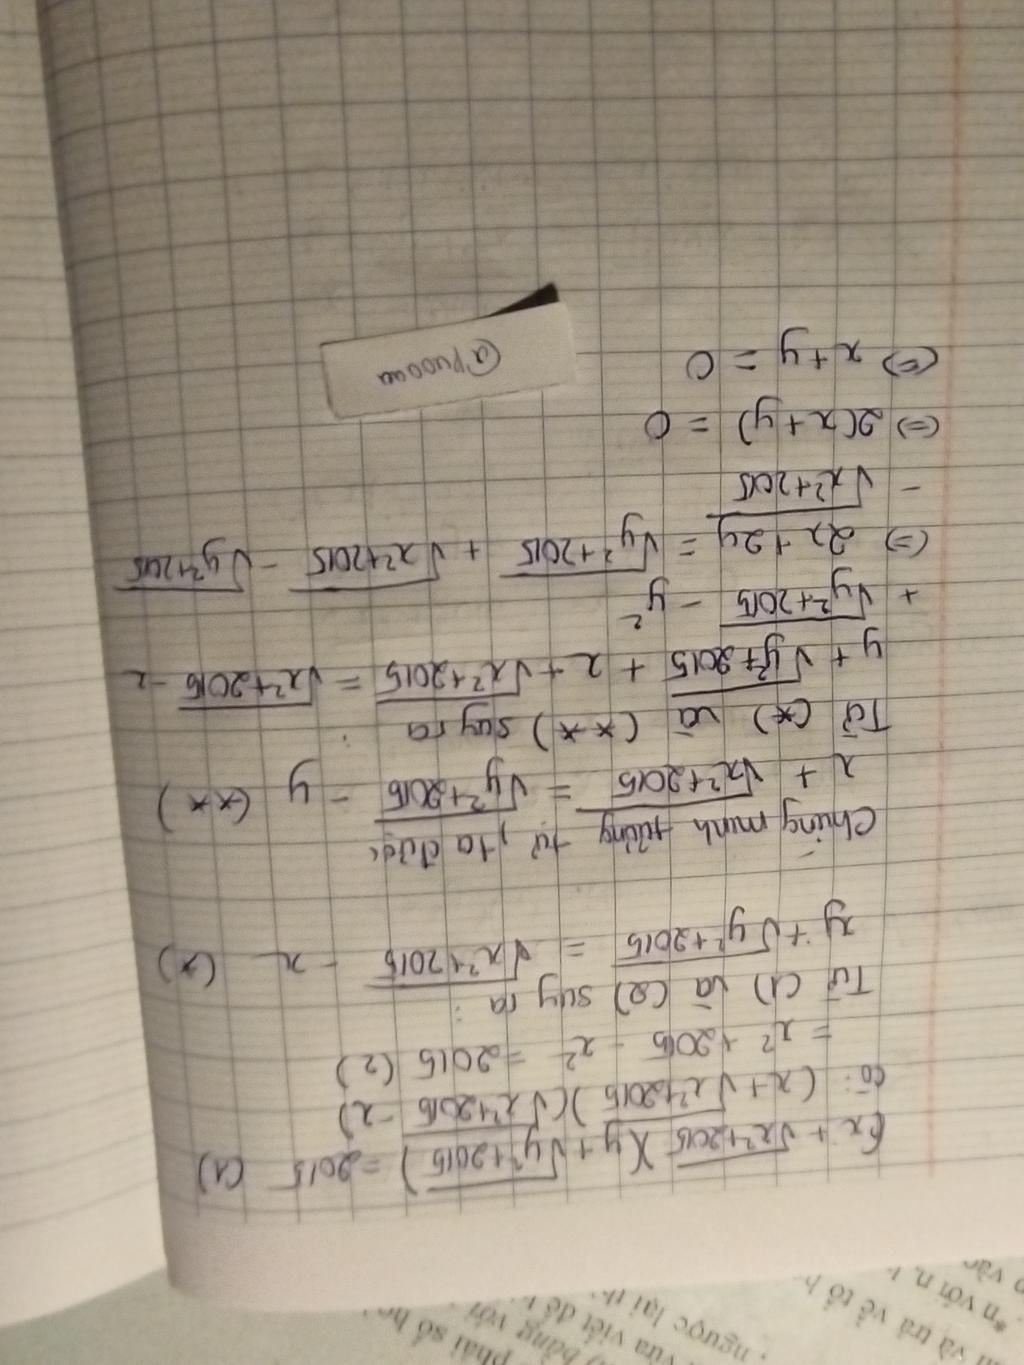 (x + √x²+2015)(y + √y²+2015) = 2015 (1)
Có: (x + √x²+2015)(√x²+2015 - x)
= x² + 2015 - x² = 2015 (2)
Từ (1) và (2) suy ra :
xy + √y²+2015 = √x²+2015 - x (*)
Chứng minh tương tự, ta được
x + √x²+2015 = √y²+2015 - y (**)
Từ (*) và (**) suy ra :
y + √y²+2015 + x + √x²+2015 = √x²+2015 - x
+ √y²+2015 - y²
(=) 2x + 2y = √y²+2015 + √x²+2015 - √y²+2015
- √x²+2015
(=) 2(x+y) = 0
(=) x+y = 0
phải số
bằng với
vừa viết
ngược lại
và trả về tổ
*n với n